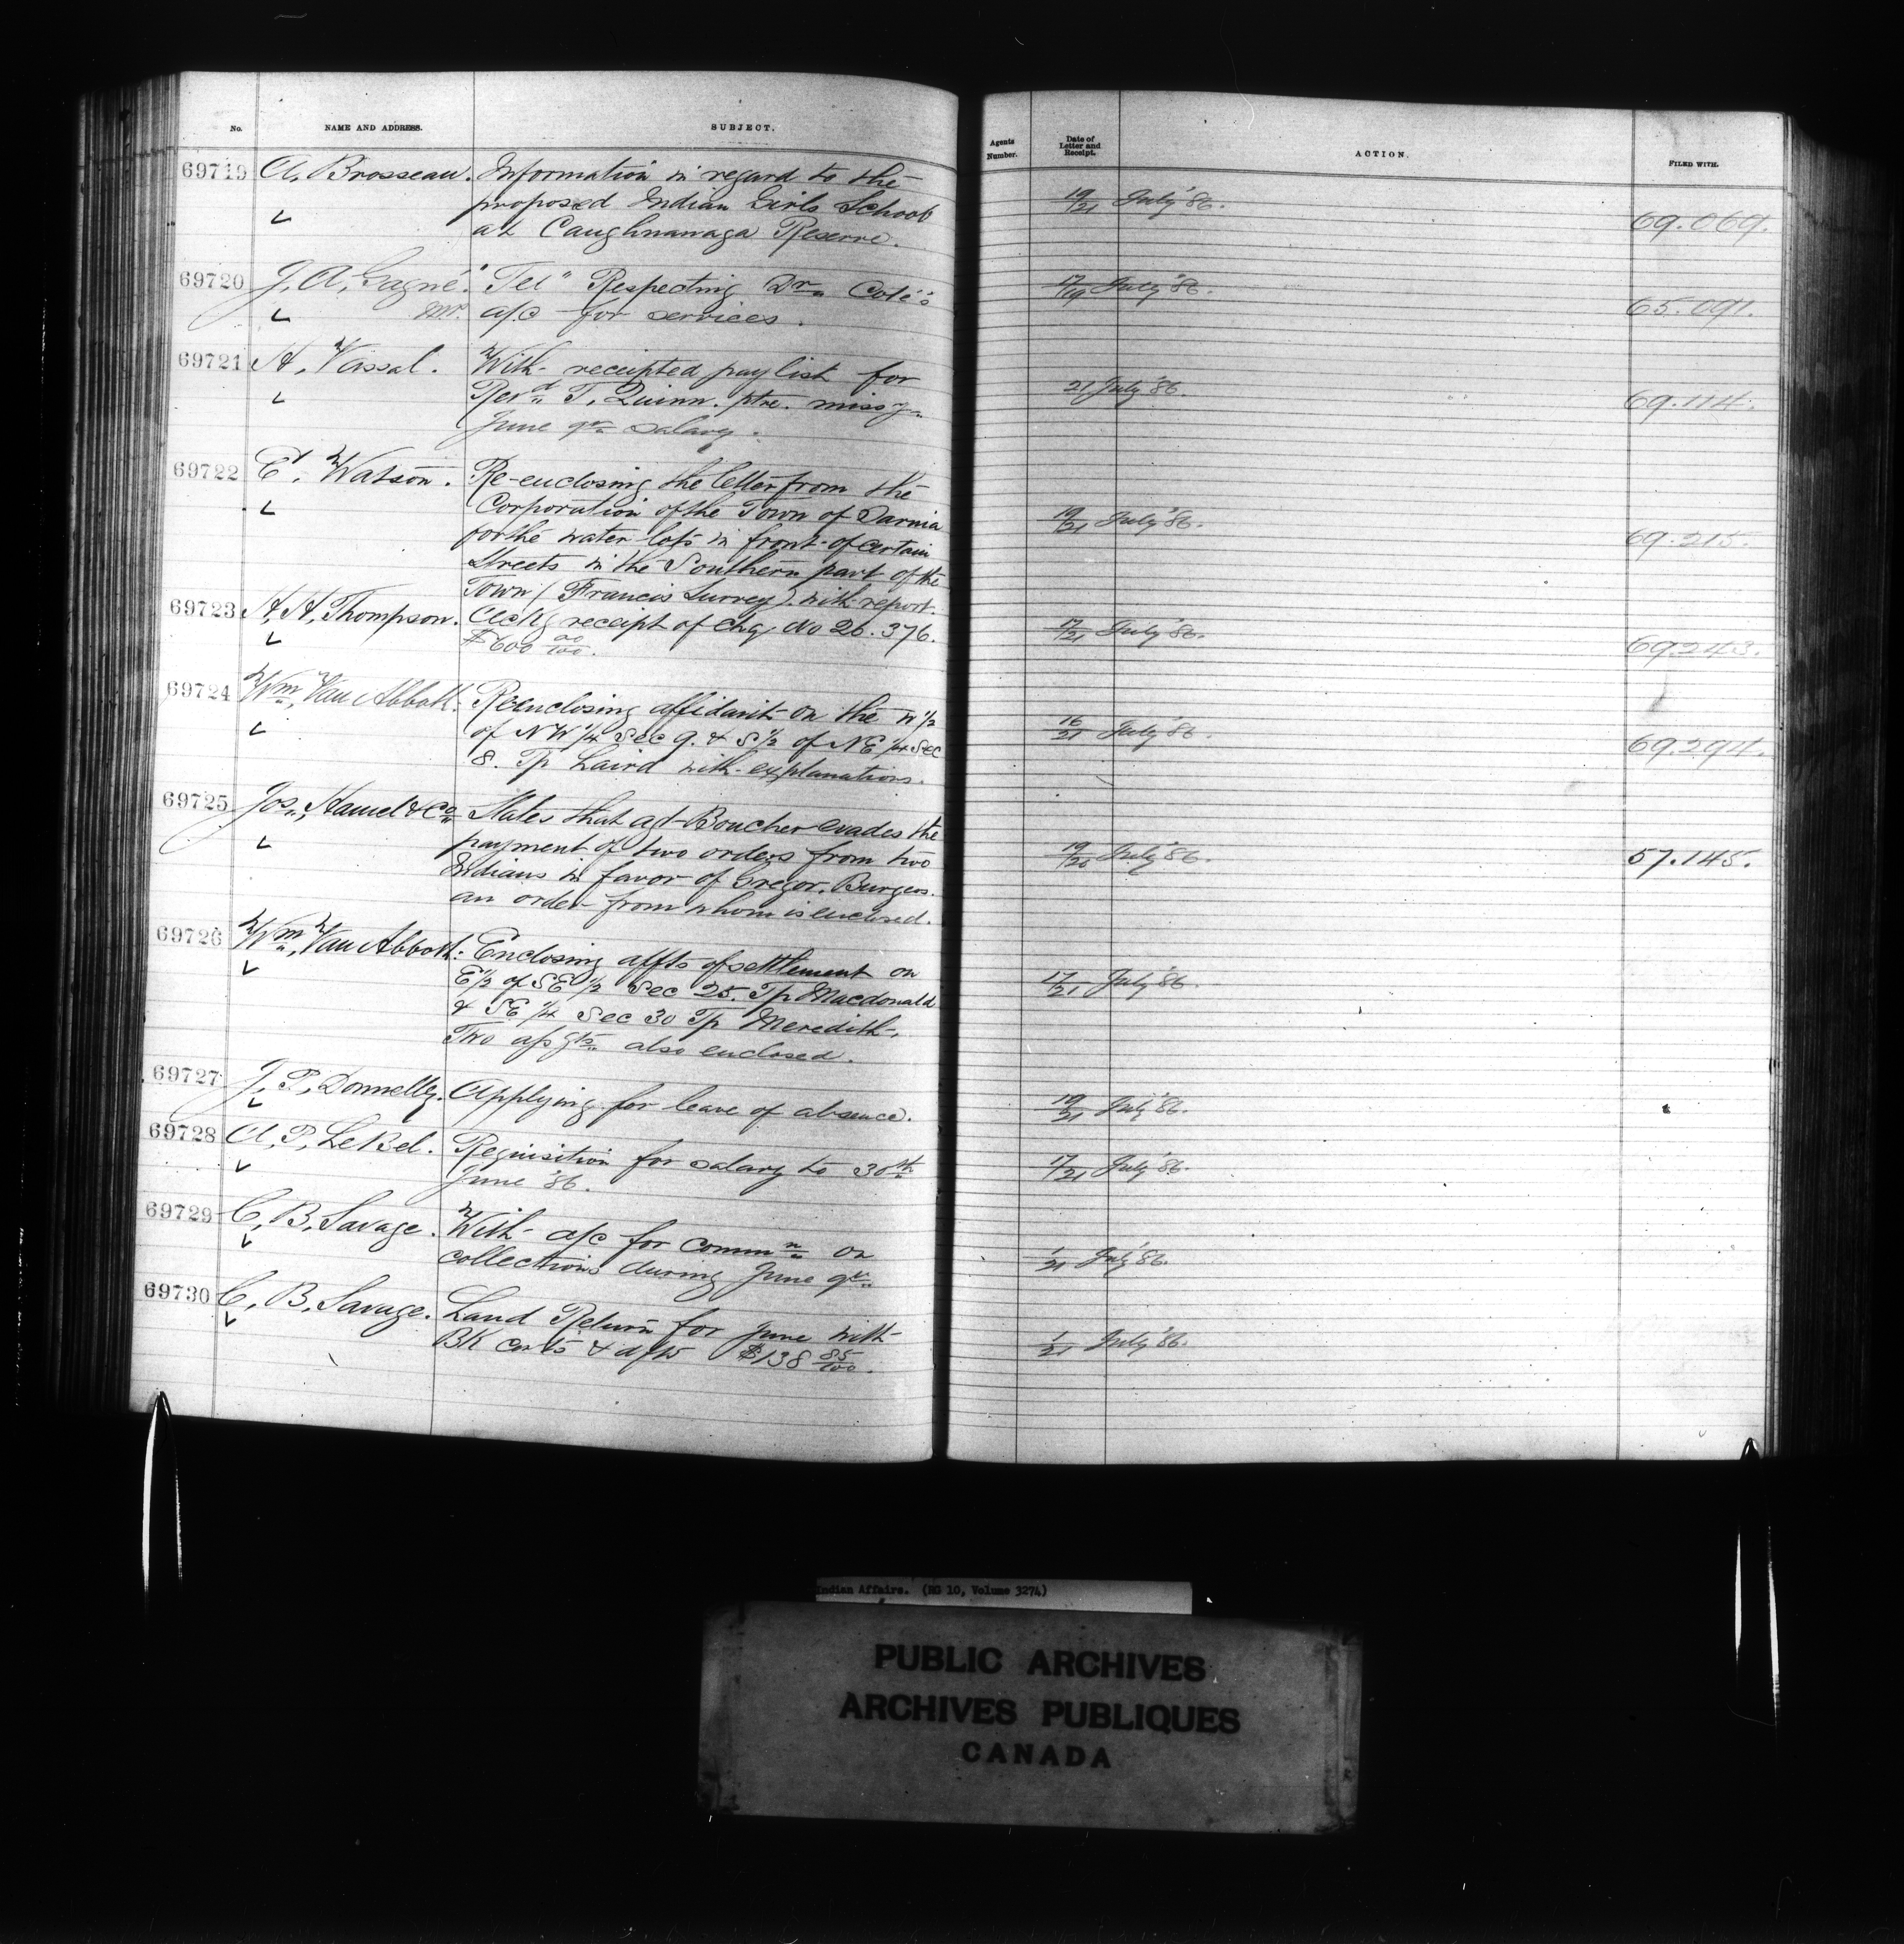 No. NAME AND ADDRESS. SUBJECT. Agents Number. Date of Letter and Receipt. ACTION. FILED WITH.
69719 A. Brosseau. Information in regard to the
proposed Indian Girls School 19/21 July '86. 69.069.
at Caughnawaga Reserve.
69720 J. A. Gagné. "Tel" Respecting Dr. Coté's 17/19 July '86. 65.091.
Mr. a/c for services.
69721 A. Vassal. With receipted pay list for
Revd. T. Quinn. ptre. missy 21 July '86. 69.114.
June qr. salary.
69722 E. Watson. Re-enclosing the letter from the
Corporation of the Town of Sarnia 19/21 July '86. 69.215.
for the water lots in front of certain
Streets in the Southern part of the
Town (Francis Survey). with report.
69723 A. A. Thompson. Ackg receipt of chq. No 26.376. 17/21 July '86. 69.243.
$600 00/100.
69724 Wm. Van Abbott. Reenclosing affidavit on the N 1/2
of NW 1/4 Sec 9. & S 1/2 of NE 1/4 Sec 16/21 July '86. 69.294.
8. Tp Laird with explanations.
69725 Jos. Hamel & Co. States that agt Boucher evades the
payment of two orders from two 19/20 July '86. 57.145.
Indians in favor of Gregor. Burgess.
an order from whom is enclosed.
69726 Wm. Van Abbott. Enclosing affts of settlement on
E 1/2 of SE 1/2 Sec 25. Tp Macdonald 17/21 July '86.
& SE 1/4 Sec 30 Tp Meredith.
Two assgts. also enclosed.
69727 J. P. Donnelly. Applying for leave of absence. 19/21 July '86.
69728 A. P. LeBel. Requisition for salary to 30th 17/21 July '86.
June '86.
69729 C. B. Savage. With a/c for commn. on
collections during June qr. 1/21 July '86.
69730 C. B. Savage. Land Return for June with
BK certs & dfts $138 85/100. 1/21 July '86.
Indian Affairs. (RG 10, Volume 3274)
PUBLIC ARCHIVES
ARCHIVES PUBLIQUES
CANADA